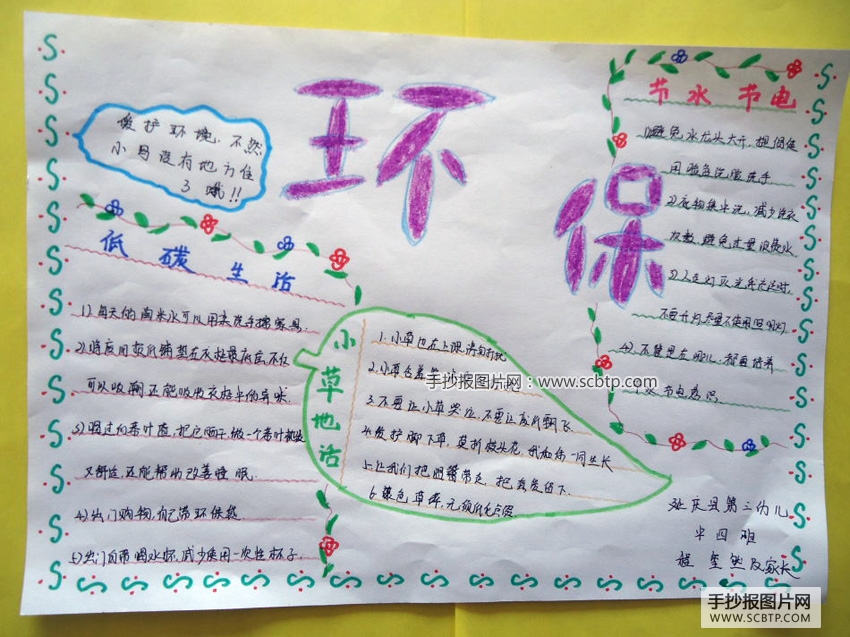 环保
爱护环境，不然
小鸟没有地方住
了哦!!
低碳生活
1)每天的淘米水可以用来洗手擦家具.
2)将废旧报纸铺垫在衣柜最底层不仅
可以吸潮,还能吸收衣柜中的异味.
3)喝过的茶叶渣,把它晒干做一个茶叶枕头
又舒适,还能帮助改善睡眠.
4)出门购物,自己带环保袋
5)出门自带喝水杯,减少使用一次性杯子.
小草地话
1.小草也在上课请勿打扰
2.小草含羞
3.不要让小草哭泣,不要让废纸飘飞
4.爱护脚下草,莫折枝头花,我和你一同生长
5.让我们把照带走,把
6.绿色草坪,
节水节电
1)避免水龙头大开,提倡使
用脸盆洗脸洗手
2)衣物集中洗,减少洗衣
次数,避免大量浪费水
3)
不要开灯尽量不使用照明灯
4)不管是在哪儿,都要培养
节水节电意识
延庆县第三幼儿
中四班
程 及家长
手抄报图片网：www.scbtp.com
手抄报图片网
WWW.SCBTP.COM